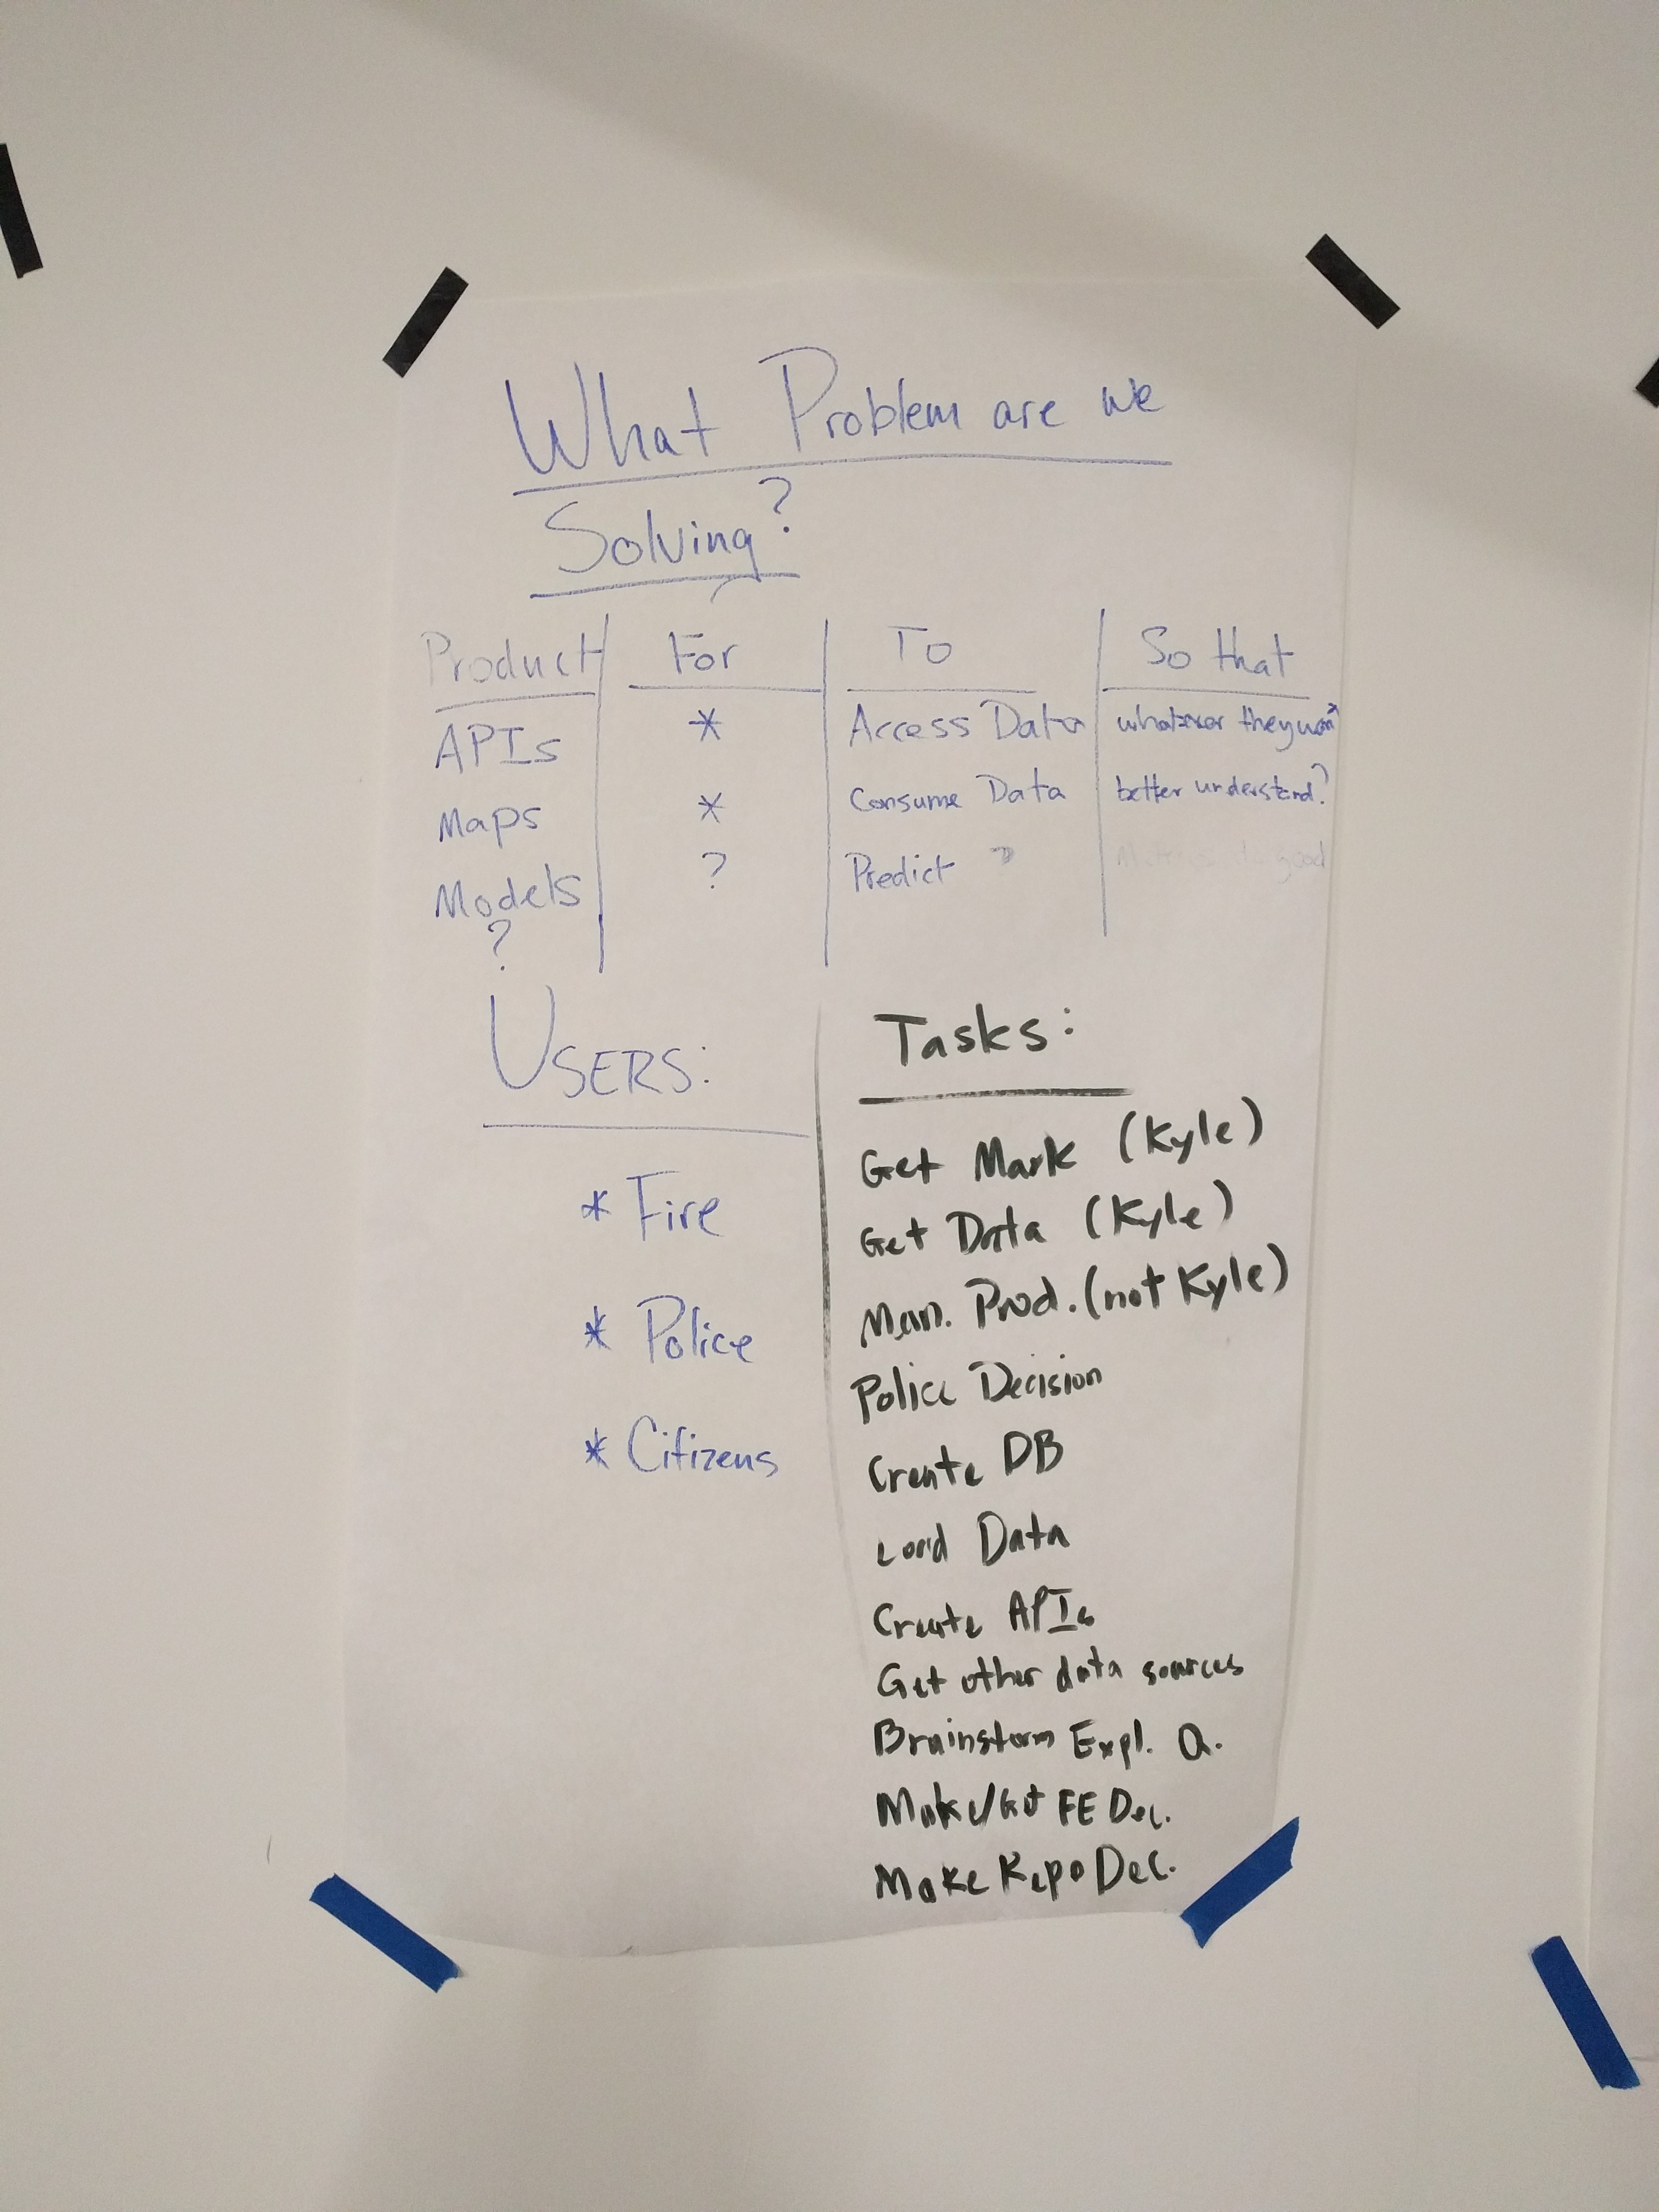 What Problem are we
Solving?
Product For To So that
APIs * Access Data whatever they want
Maps * Consume Data better understand?
Models ? Predict ? good
?
USERS:
* Fire
* Police
* Citizens
Tasks:
Get Mark (Kyle)
Get Data (Kyle)
Man. Prod. (not Kyle)
Police Decision
Create DB
Load Data
Create APIs
Get other data sources
Brainstorm Expl. Q.
Make/Get FE Dec.
Make Repo Dec.